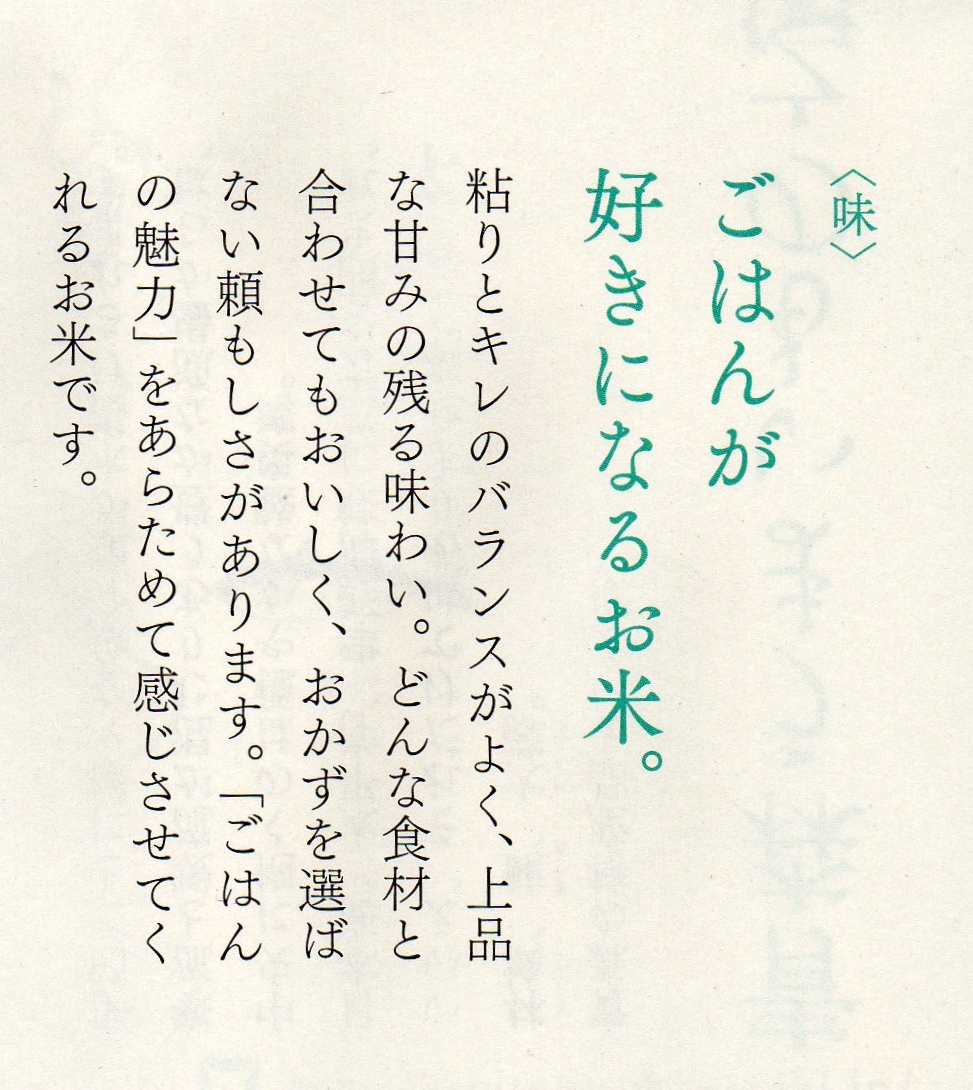 〈味〉
ごはんが
好きになるお米。
粘りとキレのバランスがよく、上品
な甘みの残る味わい。どんな食材と
合わせてもおいしく、おかずを選ば
ない頼もしさがあります。「ごはん
の魅力」をあらためて感じさせてく
れるお米です。